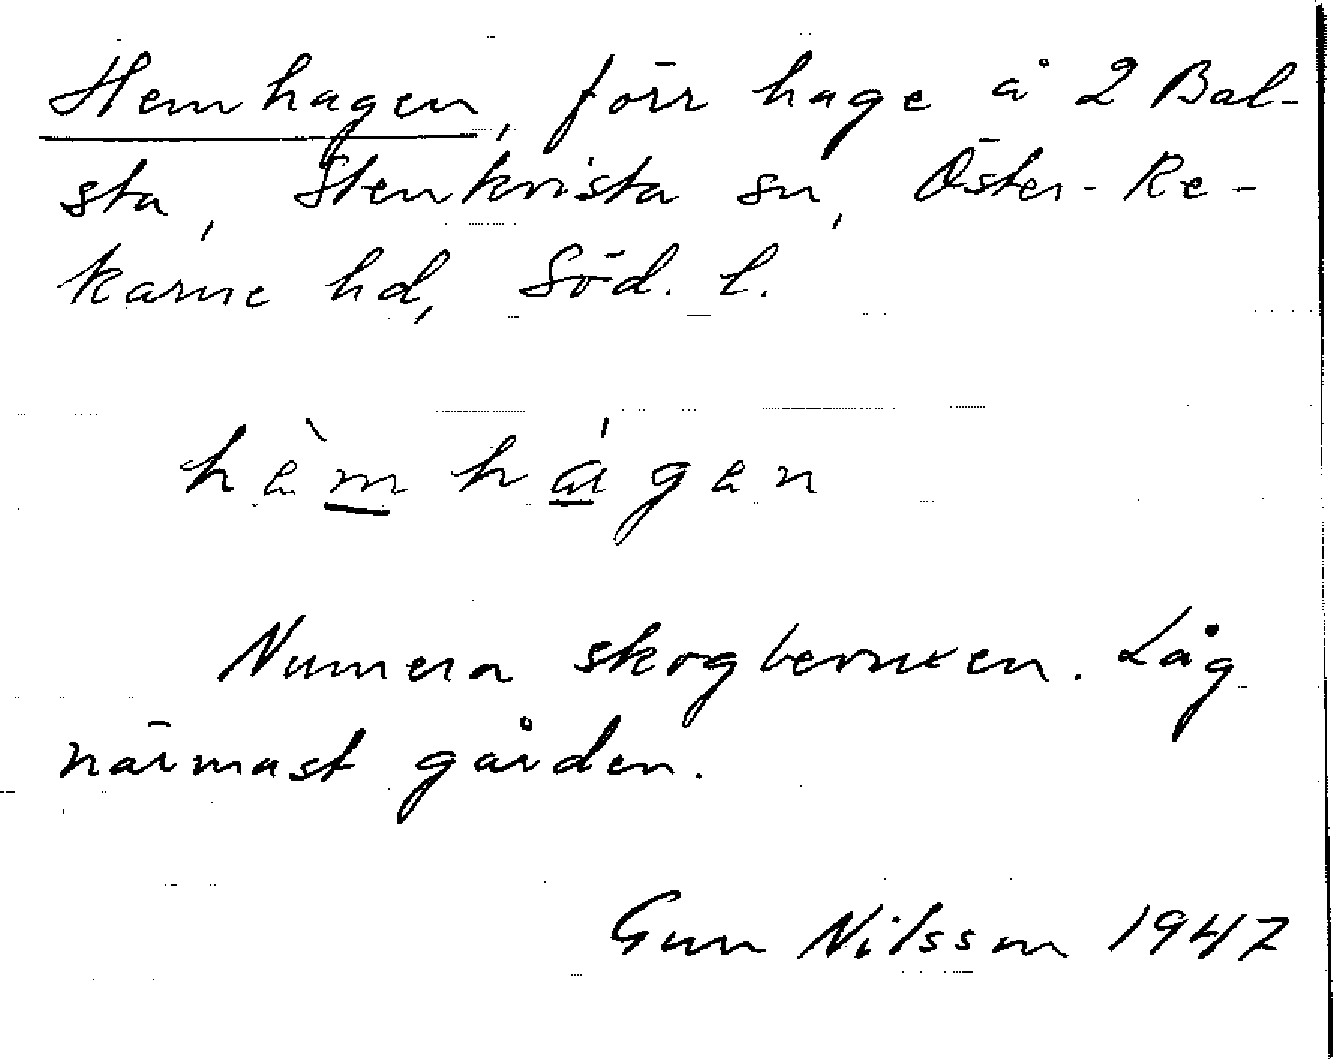 Hemhagen, förr hage å 2 Bal-
sta, Stenkvista sn, Öster-Re-
karne hd, Söd. l.
hèmhágen
Numera skogbevuxen. Låg
närmast gården.
Gun Nilsson 1947